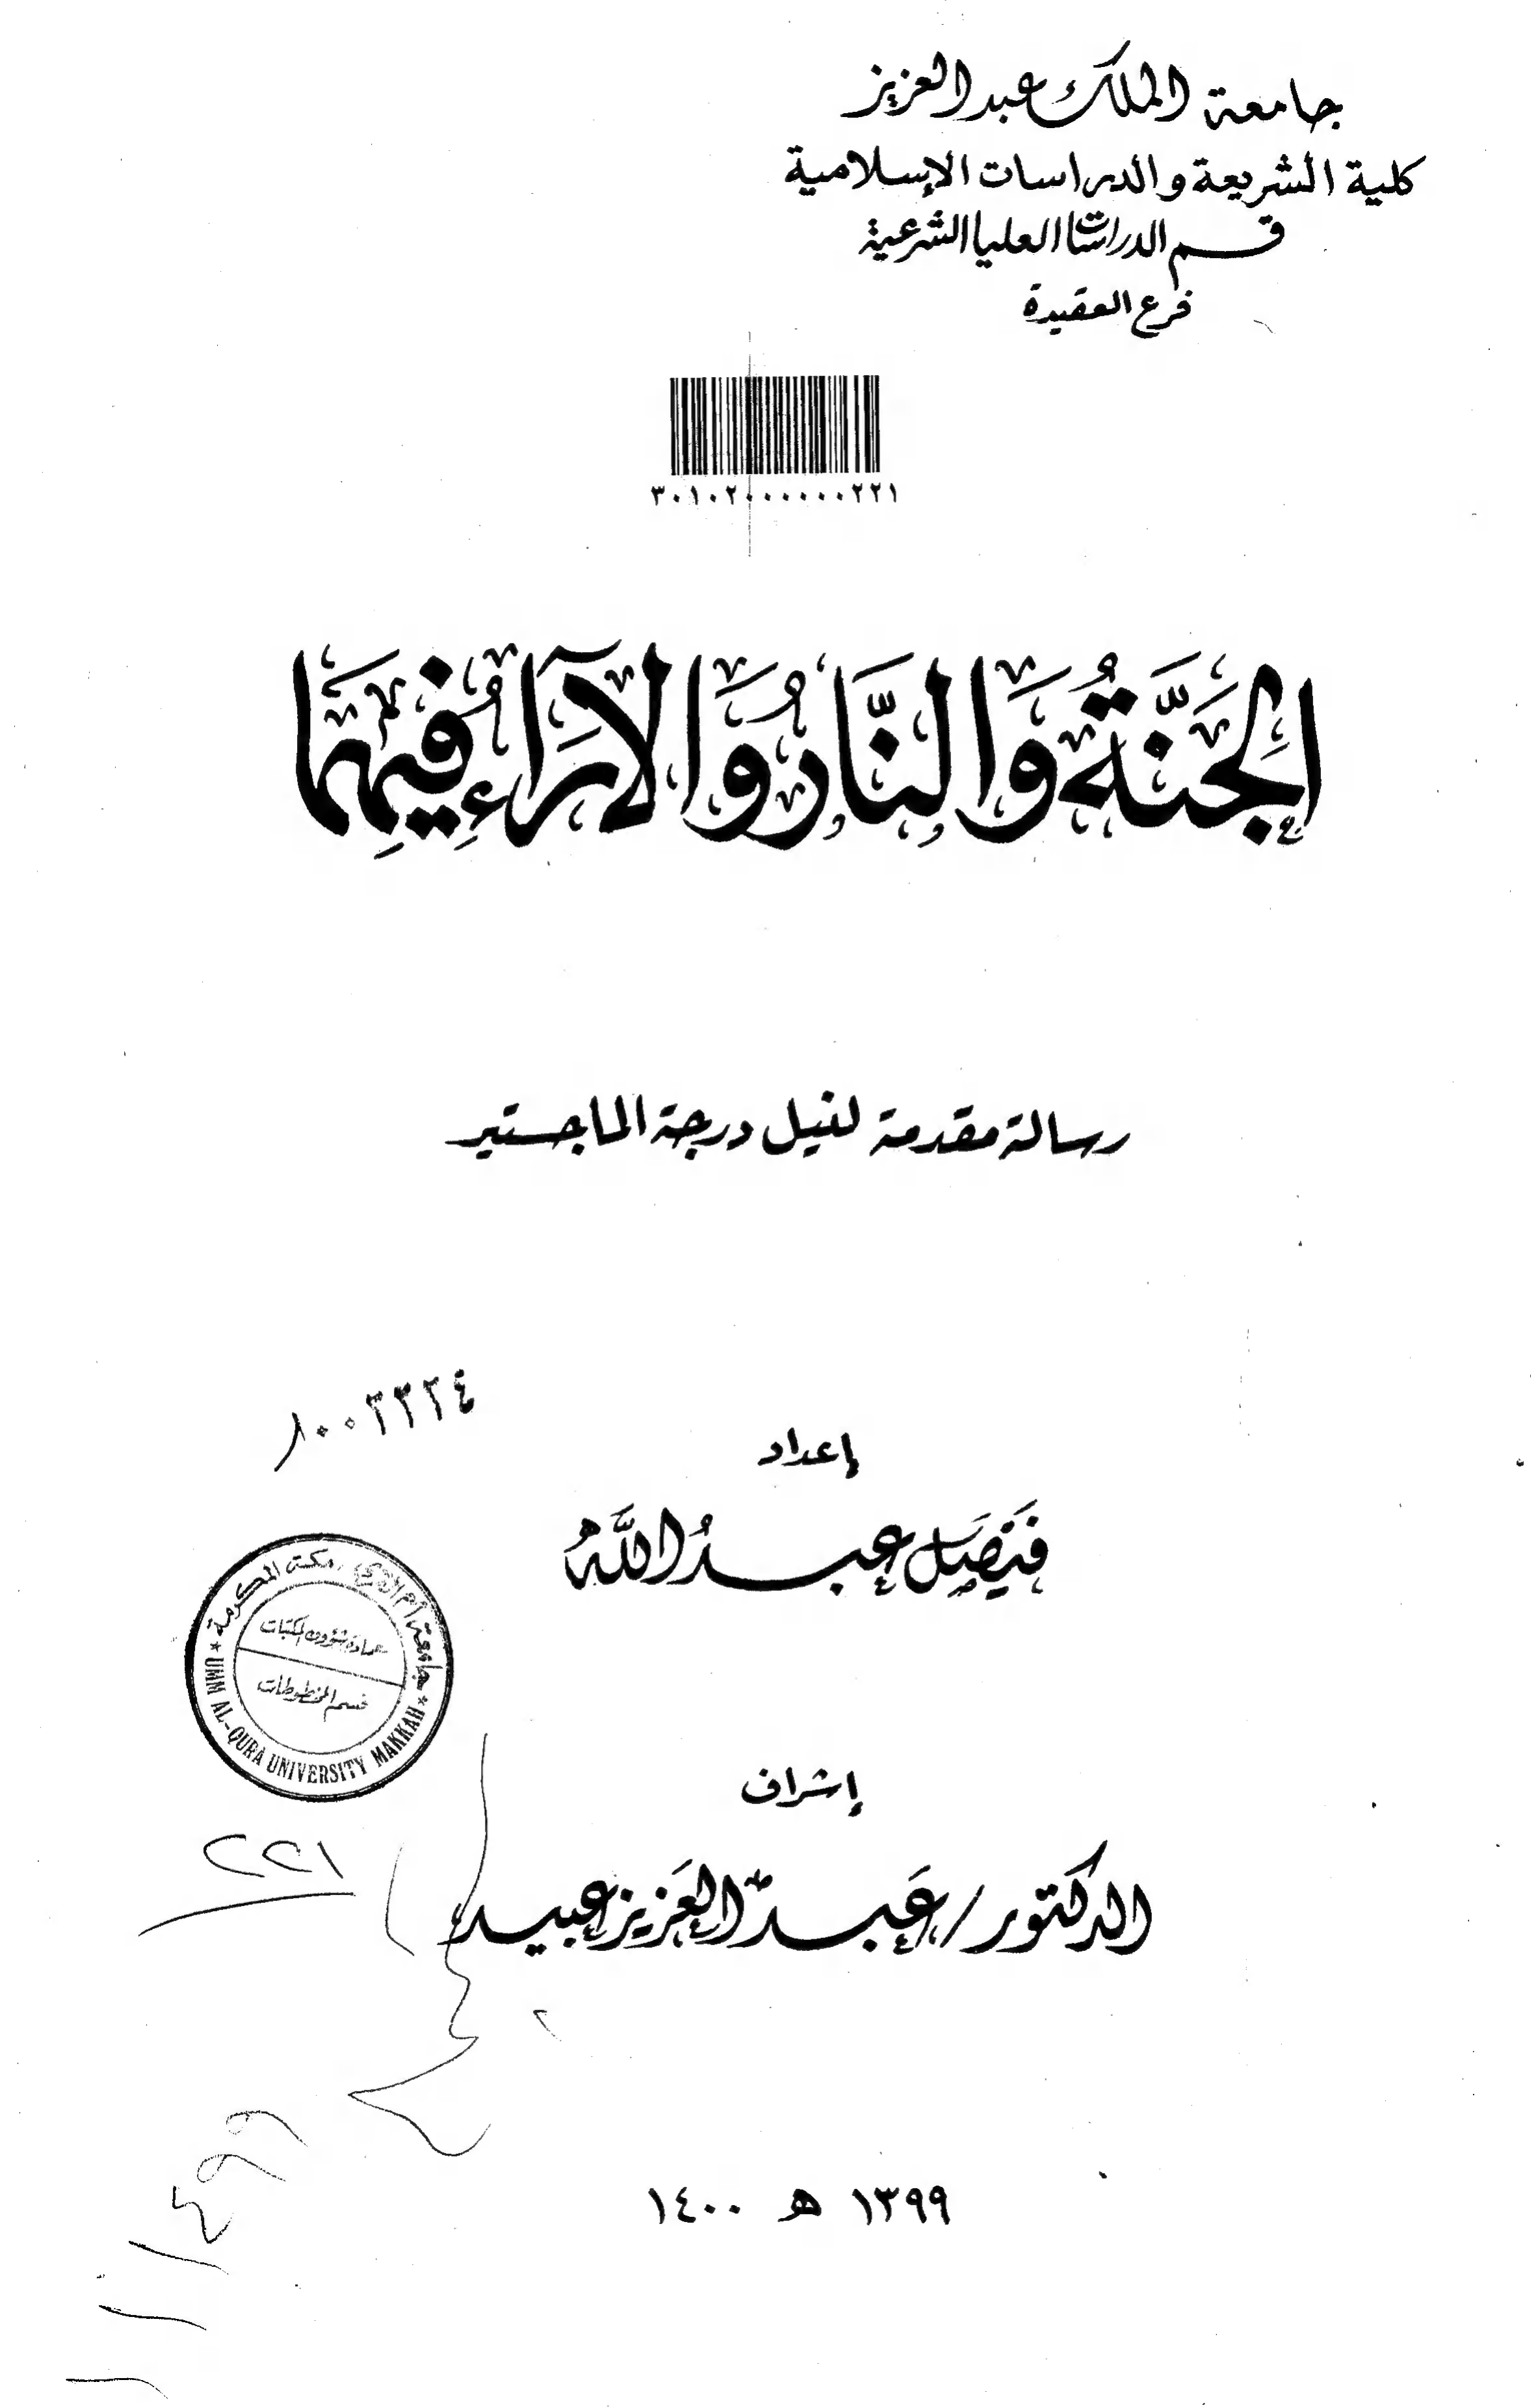 جامعة الملك عبد العزيز
كلية الشريعة والدراسات الإسلامية
قسم الدراسات العليا الشرعية
فرع العقيدة
٣٠١٠٢٠٠٠٠٠٠٢٢١
الجَنَّةُ وَالنَّارُ وَالآرَاءُ فِيهِمَا
رسالة مقدمة لنيل درجة الماجستير
١٠٠٢٢٢٤
إعداد
فَيْصَل عبدُ اللَّهُ
جامعة أم القرى . مكة المكرمة
عمادة شؤون المكتبات
قسم المخطوطات
UMM AL-QURA UNIVERSITY MAKKAH
إشراف
٢٢١
الدكتور / عَبد العَزيز عبيد
١٣٩٩ هـ ١٤٠٠